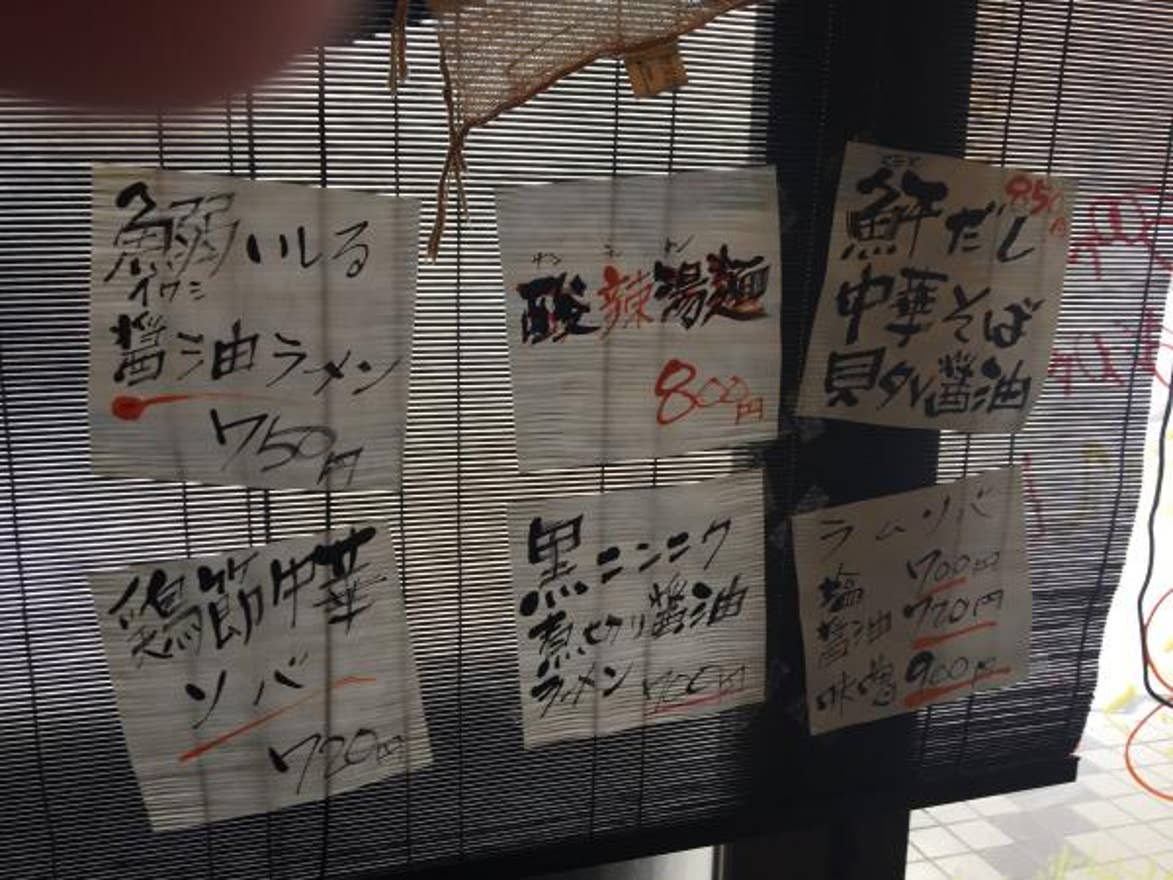 鰯いしる
イワシ
醤油ラーメン
750円
サン ラー タン
酸辣湯麺
800円
850円
だし
中華そば
貝タレ醤油
鶏節中華
ソバ
720円
黒ニンニク
煮切り醤油
ラーメン 700円
ラムソバ
塩 700円
醤油 720円
味噌 900円